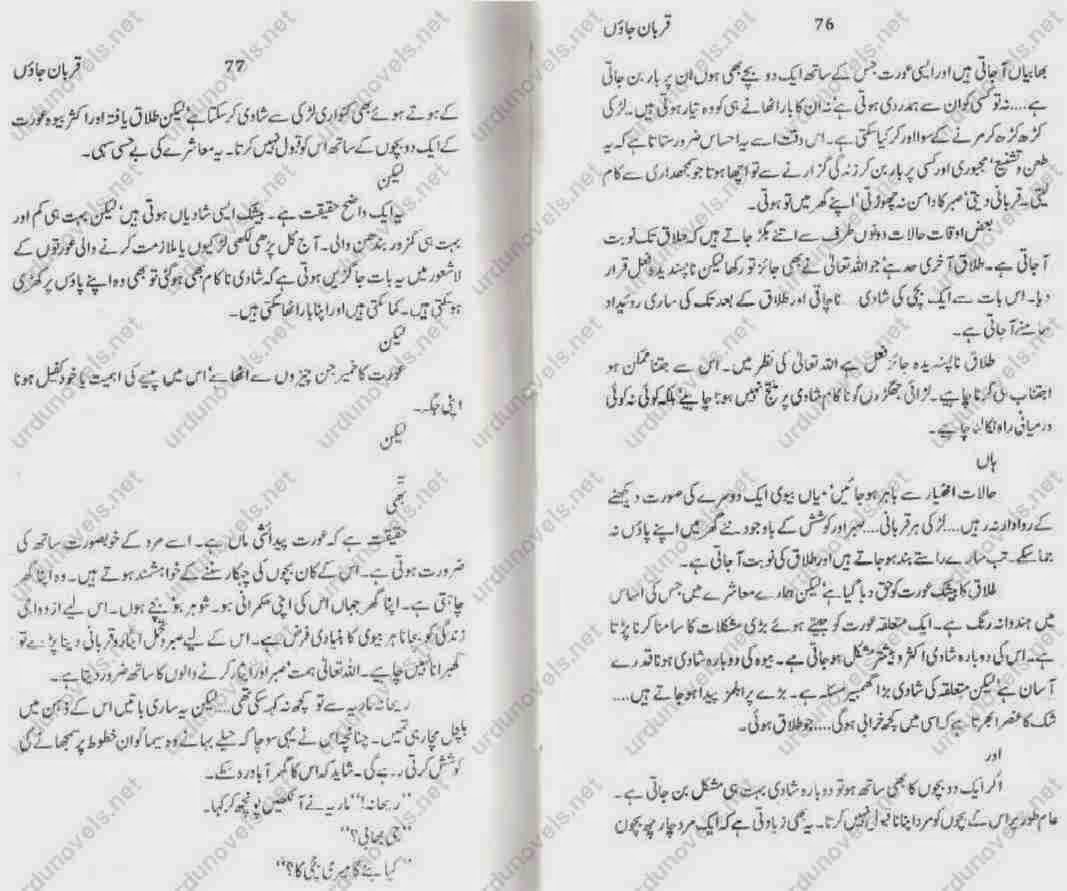 76
قربان جاؤں
بھابیاں آ جاتی ہیں اور ایسی عورت جس کے ساتھ ایک دو بچے بھی ہوں ان پر بار بن جاتی
ہے.....نہ تو کسی کو ان سے ہمدردی ہوتی ہے‘ نہ ان کا بار اٹھانے ہی کو وہ تیار ہوتی ہیں۔ لڑکی
کڑھ کڑھ کر مرنے کے سوا اور کر کیا سکتی ہے۔ اس وقت اسے یہ احساس ضرور ستاتا ہے کہ یہ
طعن و تشنیع‘ مجبوری اور کسی پر بار بن کر زندگی گزارنے سے تو اچھا ہوتا جو سمجھداری سے کام
لیتی۔ قربانی دیتی‘ صبر کا دامن نہ چھوڑتی‘ اپنے گھر میں تو ہوتی۔
بعض اوقات حالات دونوں طرف سے اتنے بگڑ جاتے ہیں کہ طلاق تک نوبت
آ جاتی ہے۔ طلاق آخری حد ہے‘ جو اللہ تعالیٰ نے بھی جائز تو رکھا لیکن ناپسندیدہ فعل قرار
دیا۔ اس بات سے ایک بچی کی شادی ناچاتی اور طلاق کے بعد تک کی ساری روئیداد
سامنے آ جاتی ہے۔
طلاق ناپسندیدہ جائز فعل ہے اللہ تعالیٰ کی نظر میں۔ اس سے جتنا ممکن ہو
اجتناب ہی کرنا چاہیے۔ لڑائی جھگڑوں کو ناکام شادی پر منتج نہیں ہونا چاہیے‘ بلکہ کوئی نہ کوئی
درمیانی راہ نکالنا چاہیے۔
ہاں
حالات اختیار سے باہر ہو جائیں‘ میاں بیوی ایک دوسرے کی صورت دیکھنے
کے روادار نہ رہیں.....لڑکی ہر قربانی.....صبر اور کوشش کے باوجود نئے گھر میں اپنے پاؤں نہ
جما سکے۔ تب سارے راستے بند ہو جاتے ہیں اور طلاق کی نوبت آ جاتی ہے۔
طلاق کا بیشک عورت کو حق دیا گیا ہے‘ لیکن ہمارے معاشرے میں جس کی اساس
میں ہندوانہ رنگ ہے۔ ایک مطلقہ عورت کو جیتے ہوئے بڑی مشکلات کا سامنا کرنا پڑتا
ہے۔ اس کی دوبارہ شادی اکثر و بیشتر مشکل ہو جاتی ہے۔ بیوہ کی دوبارہ شادی ہونا قدرے
آسان ہے‘ لیکن مطلقہ کی شادی بڑا گھمبیر مسئلہ ہے۔ بڑے پرابلمز پیدا ہو جاتے ہیں.....
شک کا عنصر ابھرتا ہے کہ اسی میں کچھ خرابی ہو گی.....جو طلاق ہوئی۔
اور
اگر ایک دو بچوں کا بھی ساتھ ہو تو دوبارہ شادی بہت ہی مشکل بن جاتی ہے۔
عام طور پر اس کے بچوں کو مرد اپنانا قبول نہیں کرتا۔ یہ بھی زیادتی ہے کہ ایک مرد چار چھ بچوں
77
قربان جاؤں
کے ہوتے ہوئے بھی کنواری لڑکی سے شادی کر سکتا ہے‘ لیکن طلاق یافتہ اور اکثر بیوہ عورت
کے ایک دو بچوں کے ساتھ اس کو قبول نہیں کرتا۔ یہ معاشرے کی بے حسی سہی۔
لیکن
یہ ایک واضح حقیقت ہے۔ بیشک ایسی شادیاں ہوتی ہیں‘ لیکن بہت ہی کم اور
بہت ہی کمزور بندھن والی۔ آج کل پڑھی لکھی لڑکیوں یا ملازمت کرنے والی عورتوں کے
لاشعور میں یہ بات جاگزیں ہوتی ہے کہ شادی ناکام بھی ہو گئی تو بھی وہ اپنے پاؤں پر کھڑی
ہو سکتی ہیں۔ کما سکتی ہیں اور اپنا بار اٹھا سکتی ہیں۔
لیکن
عورت کا خمیر جن چیزوں سے اٹھا ہے‘ اس میں پیسے کی اہمیت یا خود کفیل ہونا
اپنی جگہ۔
لیکن
بھی
حقیقت ہے کہ عورت پیدائشی ماں ہے۔ اسے مرد کے خوبصورت ساتھ کی
ضرورت ہوتی ہے۔ اس کے کان بچوں کی چہکار سننے کے خواہشمند ہوتے ہیں۔ وہ اپنا گھر
چاہتی ہے۔ اپنا گھر جہاں اس کی اپنی حکمرانی ہو۔ شوہر ہو‘ بچے ہوں۔ اس لیے ازدواجی
زندگی کو بچانا ہر بیوی کا بنیادی فرض ہے۔ اس کے لیے صبر و تحمل‘ ایثار و قربانی دینا پڑے تو
گھبرانا نہیں چاہیے۔ اللہ تعالیٰ ہمت‘ صبر اور ایثار کرنے والوں کا ساتھ ضرور دیتا ہے۔
ریحانہ ماریہ سے تو کچھ نہ کہہ سکی تھی.....لیکن یہ ساری باتیں اس کے ذہن میں
ہلچل مچا رہی تھیں۔ چنانچہ اس نے یہی سوچا کہ حیلے بہانے وہ سیما کو ان خطوط پر سمجھانے کی
کوشش کرتی رہے گی۔ شاید کہ اس کا گھر آباد رہ سکے۔
’’ریحانہ!‘‘ ماریہ نے آنکھیں پونچھ کر کہا۔
’’جی بھابی؟‘‘
’’کیا بنے گا میری بچی کا؟‘‘
urdunovels.net